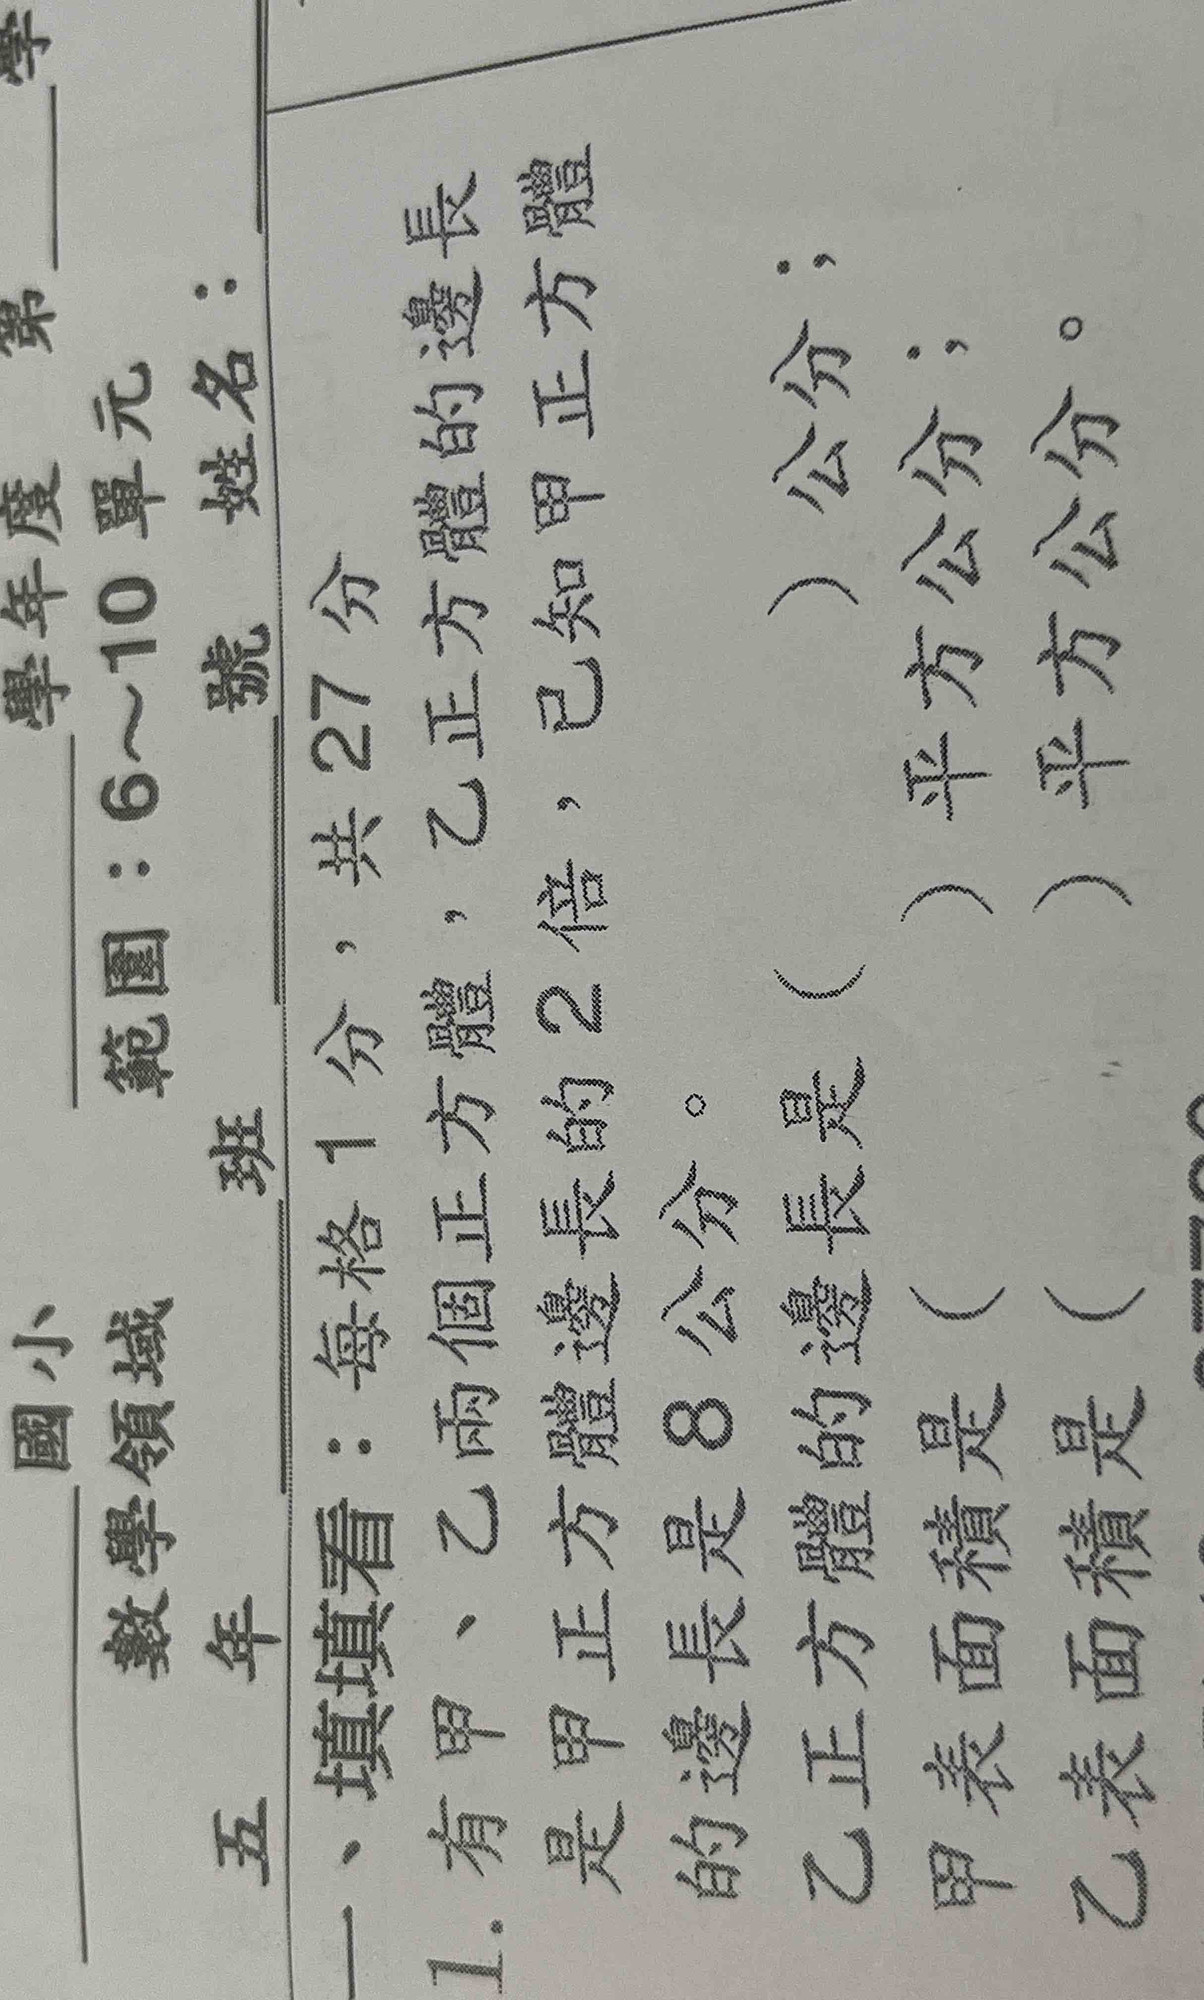 國小 學年度 第 學
數學領域 範圍：6～10 單元
五 年 班 號 姓名：
一、填填看：每格 1 分，共 27 分
1. 有甲、乙兩個正方體，乙正方體的邊長
是甲正方體邊長的 2 倍，已知甲正方體
的邊長是 8 公分。
乙正方體的邊長是（ ）公分；
甲表面積是（ ）平方公分；
乙表面積是（ ）平方公分。